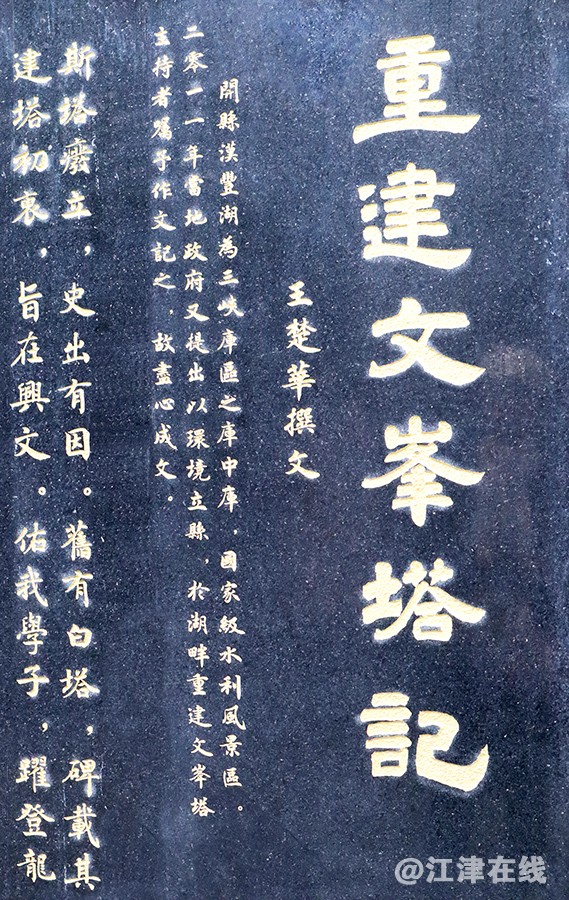 重建文峯塔記
王楚華撰文
開縣漢豐湖為三峽庫區之庫中庫，國家級水利風景區。
二零一一年當地政府又提出以環境立縣，於湖畔重建文峯塔
主持者囑予作文記之，故盡心成文。
斯塔廢立，史出有因。舊有白塔，碑載其
建塔初衷，旨在興文。佑我學子，躍登龍
@江津在线